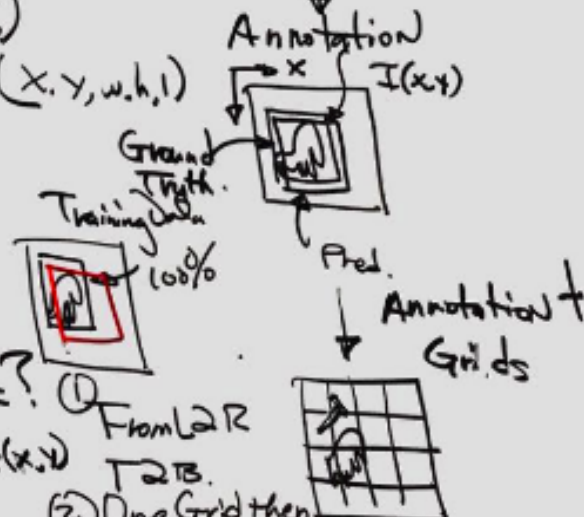 Annotation
(X.Y, w.h,1)
x
I(x,y)
Ground
Truth.
Training Data
100%
Pred.
Annotation +
Grids
?
① From L2R
(x,y)
T2B.
(2) One Grid then